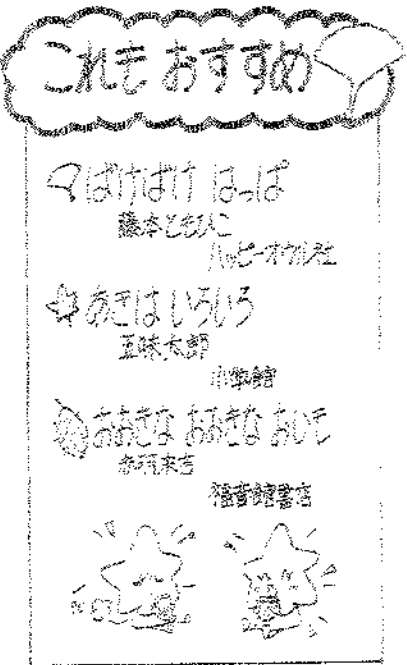 これも おすすめ
ばけばけ はっぱ
藤本ともひこ
ハッピーオウル社
あきは いろいろ
五味太郎
小学館
おおきな おおきな おいも
赤羽末吉
福音館書店